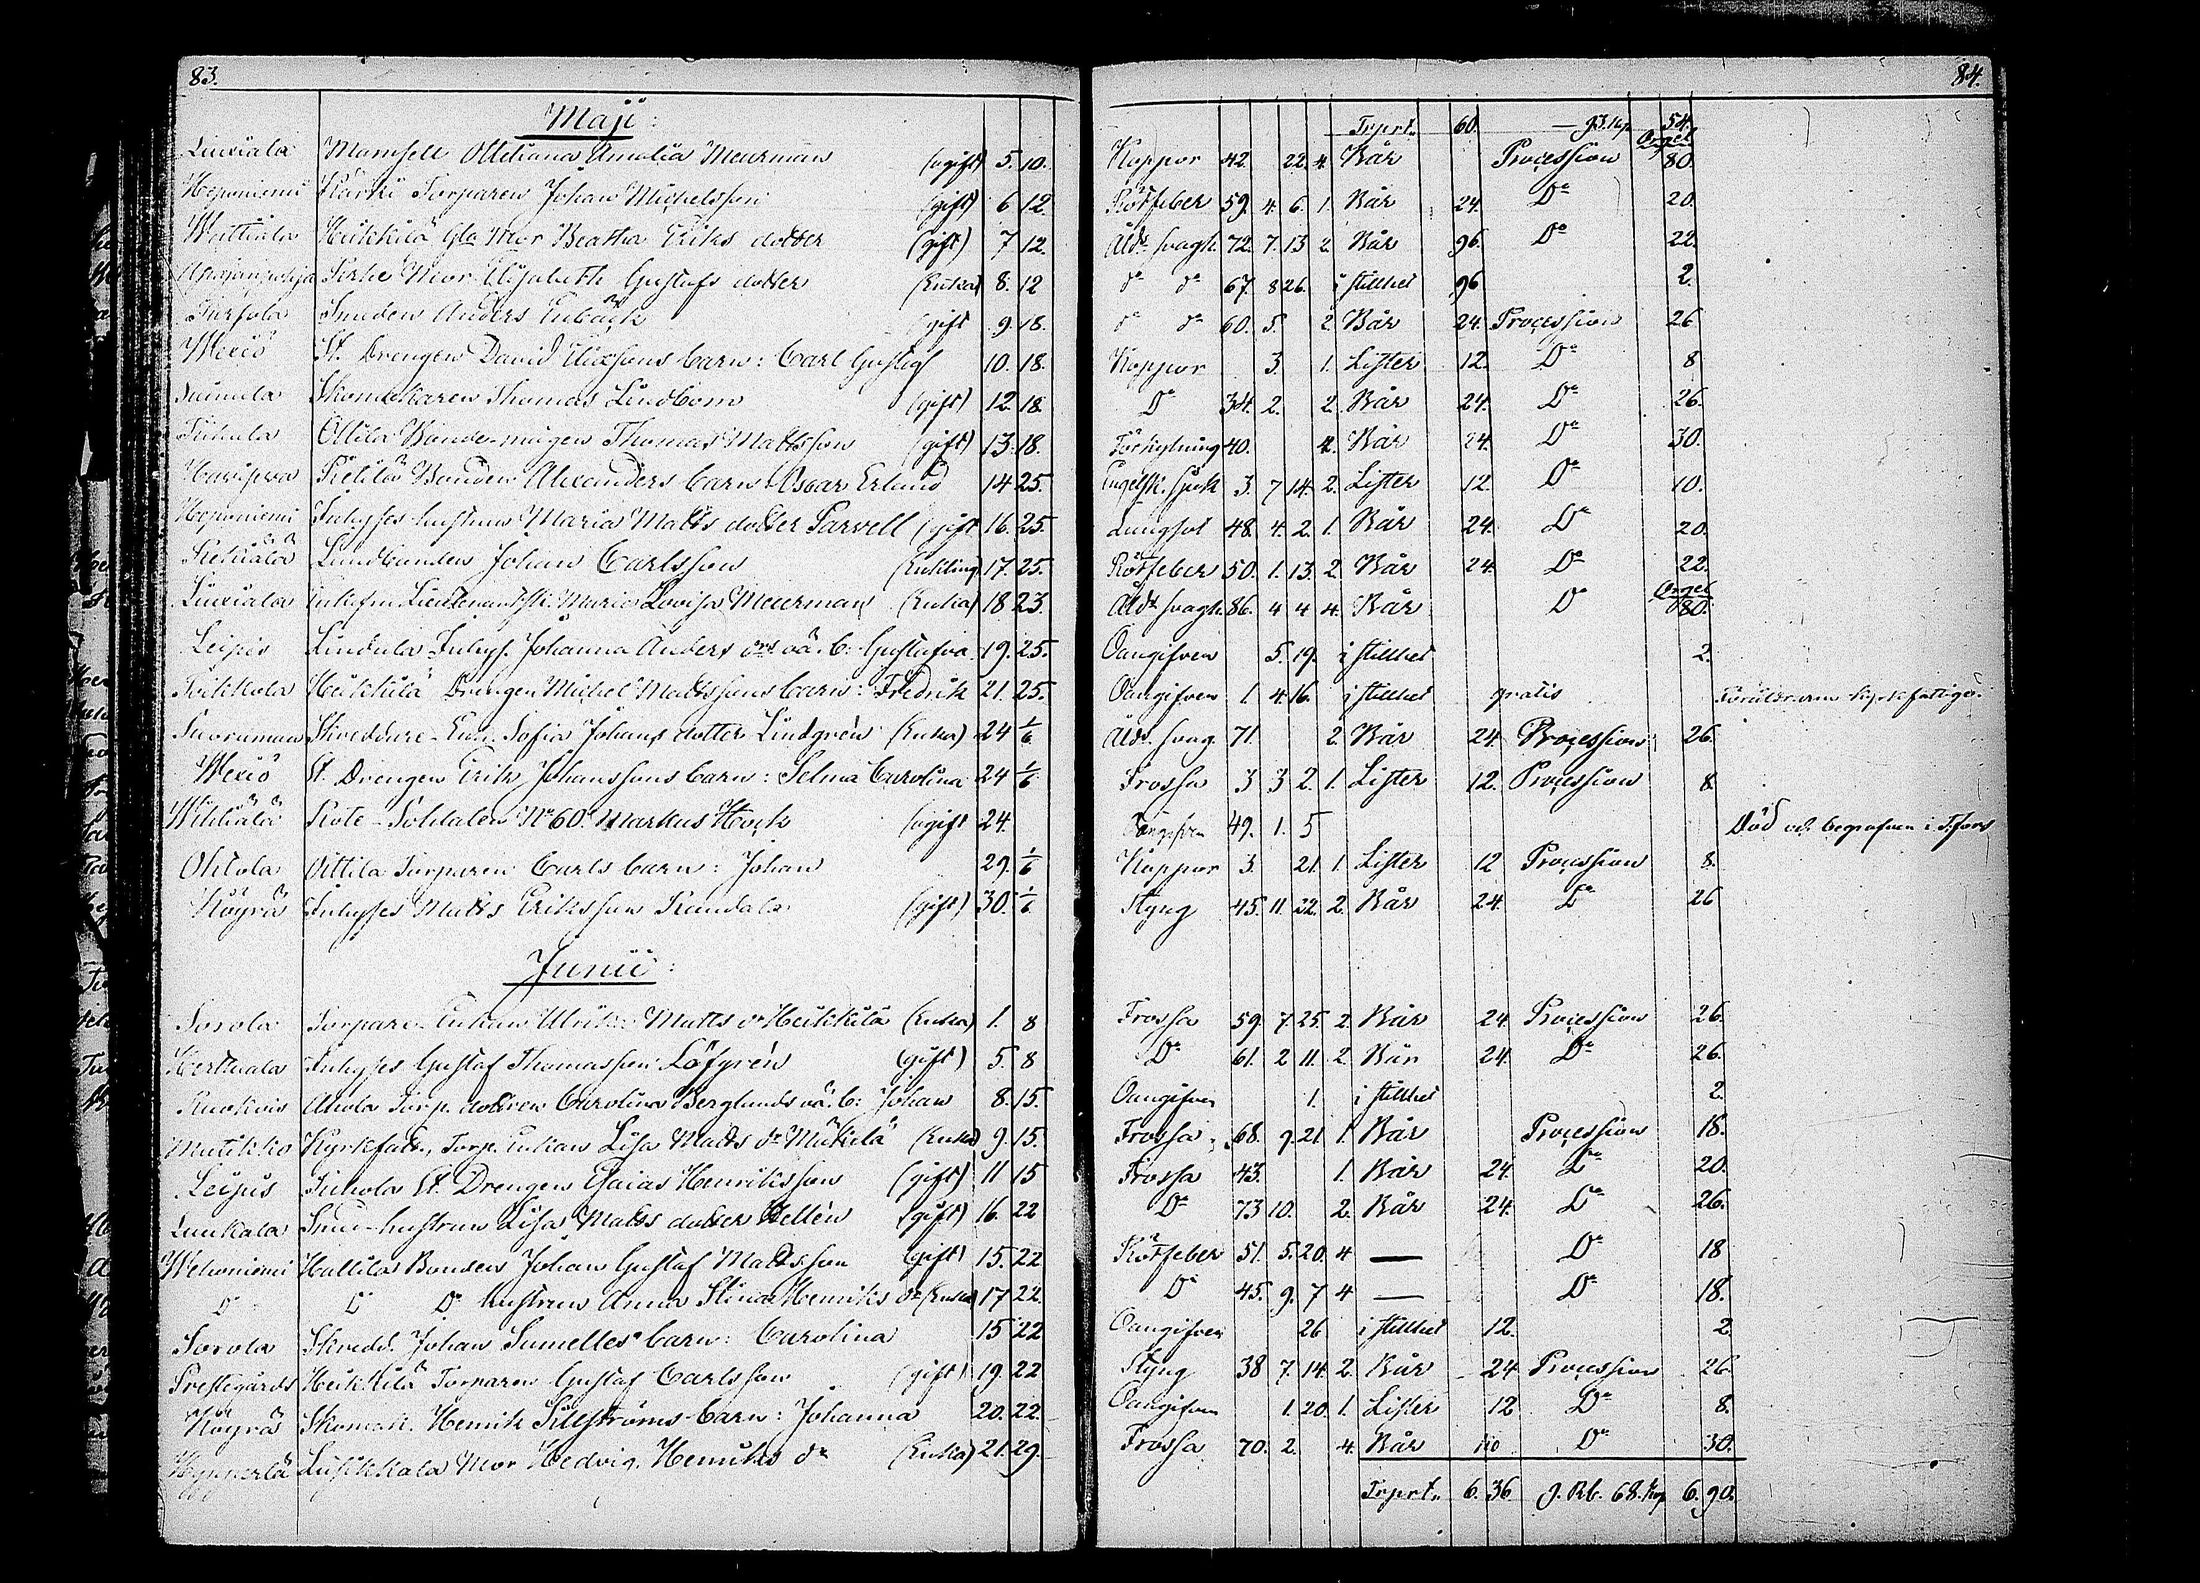 83.
Maji:
Liuxiala Mamsell Ottiliana Amalia Meurman (ogift) 5. 10.
Heponiemi Kärki Torparen Johan Michelsson (gift) 6 12.
Wattiala Heikkilä Gla Mor Beatha Eriks dotter (gift) 7 12.
Mor Elisabeth Gustafs dotter (Enka) 8. 12
Smeden Anders Enbäck (gift 9. 18.
Mexiö St. Drengen David Barn: Carl Gustaf 10. 18.
Skomakaren Thomas Lindbom (gift) 12. 18.
Ollila Bonde-mågen Thomas Mattsson (gift) 13. 18.
Haviseva Bonden Alexanders barn Oscar Erland 14 25.
Heponiemi Inhyses hustrun Maria Matts dotter Sarvell (gift 16. 25.
Landbonden Johan Carlsson (Enkling) 17. 25.
Liuxiala Enkefru Maria Lovisa Meurman (Enka) 18 23.
Leipis Lindula Inhys. Johanna Anders dotr oä. b: Gustafva 19. 25.
Heikkilä Drengen Michel Mattssons barn: Fredrik 21. 25.
Suorama Skreddare-Enk. Sofia Johans dotter Lindgrén (Enka) 24 1/6
Mexiö St. Drengen Erik Johanssons barn: Selma Carolina 24 1/6
Rote-Soldaten No 60. Markus Hock (ogift 24.
Ohtola Torparen Carls barn: Johan 29. 1/6
Köyrä Inhyses Matts Eriksson (gift) 30. 1/6
Junii:
Sorola Torpare-Enkan Ulrika Matts dr Heikkilä (Enka) 1. 8
Hertuala Inhyses Gustaf Thomasson Löfgrén (gift) 5. 8
Ruokois Torp. dottren Carolina Berglunds oä. b: Johan 8. 15.
Mutikko Kyrkfatt., Torp. Enkan Lisa Matts dr Mikkelä (Enka) 9. 15.
Leipis St. Drengen Esaias Henriksson (gift) 11 15
Liukala Smed-hustrun Lisa Matts dotter Hellén (gift) 16. 22
Wehoniemi Hallila Bonden Johan Gustaf Mattsson (gift) 15. 22
Do Do Do hustrun Anna Stina Henriks dr (Enka) 17 22.
Sorola Skredd. Johan Sumelles barn: Carolina 15 22
Prestegårds Heikkilä Torparen Gustaf Carlsson (gift) 19. 22
Köyrä Skomak. Henrik Sillströms barn: Johanna 20. 22.
Liukkala Mor Hedvig Henriks dr (Enka) 21. 29.
84.
Trprt. 60. — 93. kp 54.
Koppor 42. 22. 4. Bår Procession Orgel 80.
Rötfeber 59. 4. 6. 1. Bår 24. Do 20.
Åldr. svagh. 72. 7. 13 2. Bår 96. Do 22.
do do 67. 8 26. i stillhet 96 2.
do do 60. 5. 2. Bår 24. Procession 26
Koppor 3. 1. Lister 12. Do 8
Do 34. 2. 2. Bår 24. Do 26.
Förkylning 40. 4. Bår 24. Do 30.
Engelsk. sjuk 3. 7 14. 2. Lister 12. Do 10.
Lungsot 48. 4. 2. 1. Bår 24. Do 20.
Rötfeber 50. 1. 13. 2. Bår 24. Do 22.
Åldr. svagh. 86. 4 4 4. Bår Do Orgel 80.
Oangifven 5. 19. i stillhet 2.
Oangifven 1. 4. 16. i stillhet gratis Föräldrarne kyrkofattiga.
Åldr. svag. 71. 2. Bår 24. Procession 26.
Frossa 3 3 2. 1. Lister 12. Procession 8.
Oangifven 49. 1. 5 Död och begrafven i T:fors
Koppor 3. 21. 1. Lister 12 Procession 8.
Styng 45. 11. 22. 2. Bår 24. Do 26
Frossa 59. 7. 25. 2. Bår 24. Procession 26.
Do 61. 2 11. 2. Bår 24. Do 26.
Oangifven 1. i stillhet 2.
Frossa 68. 9. 21. 1. Bår Procession 18.
Frossa 43. 1. Bår 24. Do 20.
Do 73 10. 2. Bår 24. Do 26.
Rötfeber 51. 5. 20. 4 — Do 18
Do 45. 9. 7 4 — Do 18.
Oangifven 26 i stillhet 12. 2.
Styng 38 7. 14. 2. Bår 24 Procession 26
Oangifven 1. 20. 1. Lister 12 Do 8.
Frossa 70. 2. 4. Bår Do 30.
Trprt. 6. 36 9. Rb. 68. kop 6. 90.